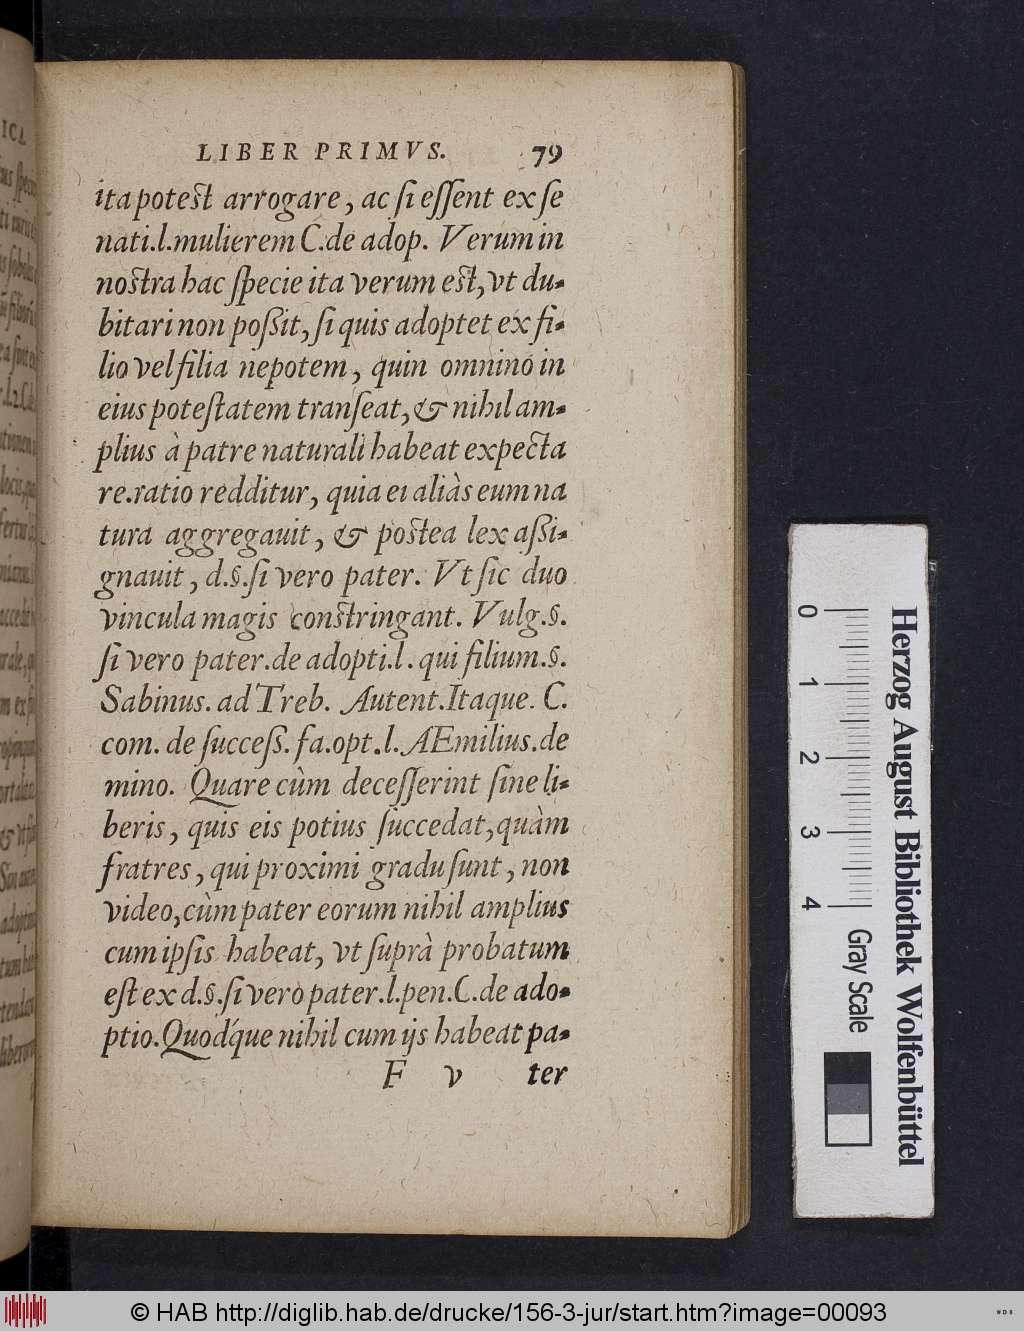 LIBER PRIMVS. 79
ita potest arrogare, ac si essent ex se
nati.l.mulierem C.de adop. Verum in
nostra hac specie ita verum est, vt du-
bitari non poßit, si quis adoptet ex fi-
lio vel filia nepotem, quin omnino in
eius potestatem transeat, & nihil am-
plius à patre naturali habeat expecta
re.ratio redditur, quia ei aliàs eum na
tura aggregauit, & postea lex aßi-
gnauit, d.§.si vero pater. Vt sic duo
vincula magis constringant. Vulg.§.
si vero pater.de adopti.l. qui filium.§.
Sabinus. ad Treb. Autent.Itaque. C.
com. de success. fa.opt.l.AEmilius.de
mino. Quare cùm decesserint sine li-
beris, quis eis potius succedat, quàm
fratres, qui proximi gradu sunt, non
video, cùm pater eorum nihil amplius
cum ipsis habeat, vt suprà probatum
est ex d.§.si vero pater.l.pen.C.de ado-
ptio.Quodq́ue nihil cum ijs habeat pa-
F v ter
0 1 2 3 4 Gray Scale
Herzog August Bibliothek Wolfenbüttel
© HAB http://diglib.hab.de/drucke/156-3-jur/start.htm?image=00093